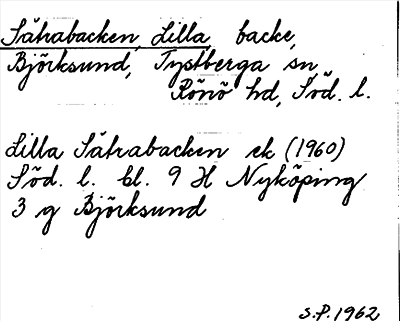 Såtrabacken, Lilla, backe,
Björksund, Tystberga sn,
Rönö hd, Söd. l.
Lilla Såtrabacken ek (1960)
Söd. l. bl. 9 H Nyköping
3 g Björksund
S.P. 1962